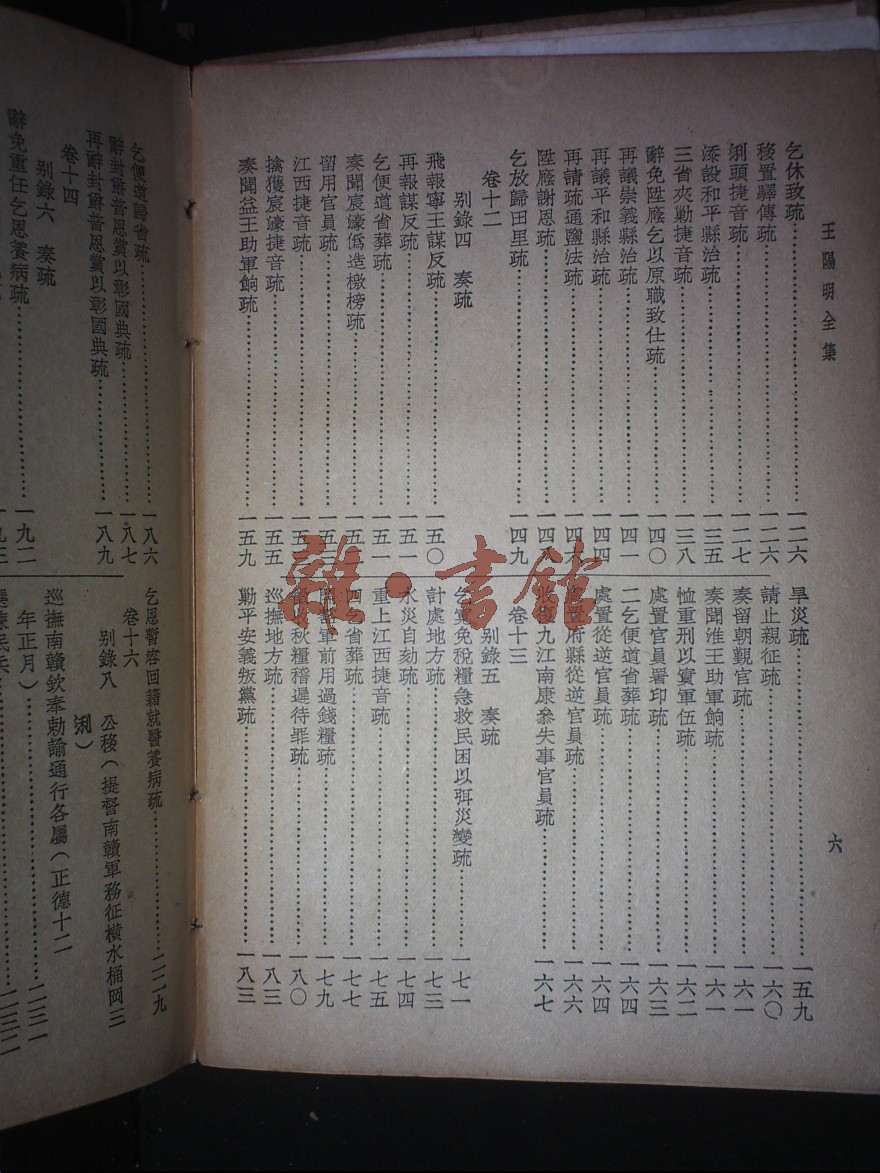 王陽明全集
六
乞休致疏⋯⋯一二六
移置驛傳疏⋯⋯一二六
浰頭捷音疏⋯⋯一二七
添設和平縣治疏⋯⋯一三五
三省夾勦捷音疏⋯⋯一三八
辭免陞廕乞以原職致仕疏⋯⋯一四〇
再議崇義縣治疏⋯⋯一四一
再議平和縣治疏⋯⋯一四四
再請疏通鹽法疏⋯⋯一四六
陞廕謝恩疏⋯⋯一四八
乞放歸田里疏⋯⋯一四九
卷十二
別錄四　奏疏
飛報寧王謀反疏⋯⋯一五〇
再報謀反疏⋯⋯一五一
乞便道省葬疏⋯⋯一五一
奏聞宸濠僞造檄榜疏⋯⋯一五二
留用官員疏⋯⋯一五三
江西捷音疏⋯⋯一五三
擒獲宸濠捷音疏⋯⋯一五五
奏聞益王助軍餉疏⋯⋯一五九
旱災疏⋯⋯一五九
請止親征疏⋯⋯一六〇
奏留朝覲官疏⋯⋯一六一
奏聞淮王助軍餉疏⋯⋯一六一
恤重刑以實軍伍疏⋯⋯一六二
處置官員署印疏⋯⋯一六三
二乞便道省葬疏⋯⋯一六四
處置從逆官員疏⋯⋯一六四
處置府縣從逆官員疏⋯⋯一六六
九江南康參失事官員疏⋯⋯一六七
卷十三
別錄五　奏疏
乞寬免稅糧急救民困以弭災變疏⋯⋯一七一
計處地方疏⋯⋯一七三
水災自劾疏⋯⋯一七四
重上江西捷音疏⋯⋯一七五
四乞省葬疏⋯⋯一七七
軍前用過錢糧疏⋯⋯一七九
收秋糧稽遲待罪疏⋯⋯一八〇
巡撫地方疏⋯⋯一八三
勦平安義叛黨疏⋯⋯一八三
乞便道歸省疏⋯⋯一八六
辭封爵普恩賞以彰國典疏⋯⋯一八七
再辭封爵普恩賞以彰國典疏⋯⋯一八九
卷十四
別錄六　奏疏
辭免重任乞恩養病疏⋯⋯一九二
一九三
乞恩暫容回籍就醫養病疏⋯⋯二二九
卷十六
別錄八　公移（提督南贛軍務征橫水桶岡三
浰）
巡撫南贛欽奉勅諭通行各屬（正德十二
年正月）⋯⋯二三一
選揀民兵⋯⋯二三二
雜·書館